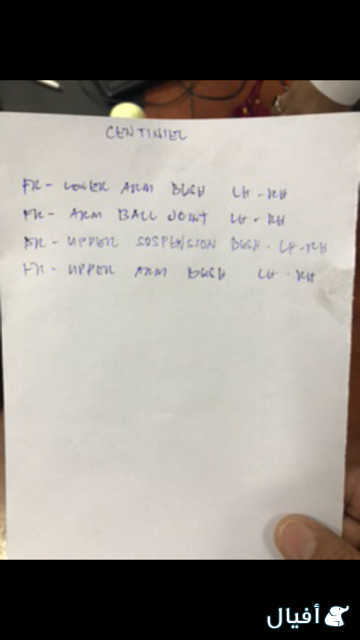 CENTINIEL
FR - LOWER ARM BUSH LH - RH
FR - ARM BALL JOINT LH - RH
FR - UPPER SOSPENSION BUSH - LH - RH
FR - UPPER ARM BUSH LH - RH
أفيال